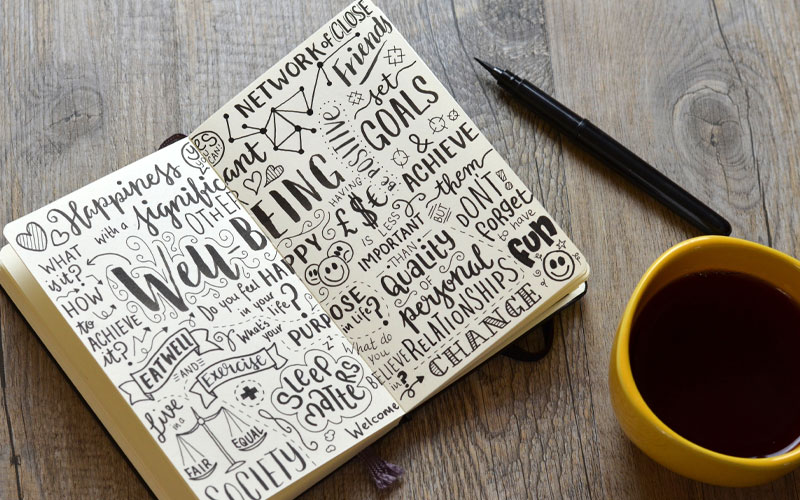 Happiness
with a significant
OTHER
yes
you
CAN!
WHAT
is it?
HOW
to
ACHIEVE
it?
Well BEING
Do you feel HAPPY
in your
life?
What's your PURPOSE
in life?
EAT WELL
AND
Exercise
SLEEP
Matters
zzz
Live
in a
FAIR
EQUAL
SOCIETY
Welcome
NETWORK of CLOSE
Friends
set
GOALS
& ACHIEVE
them
be positive
HAVING
£$€
IS LESS
IMPORTANT
THAN
BUT
DON'T
forget
to have
fun
Quality
OF
personal
RELATIONSHIPS
What do
you
BELIEVE
in?
CHANGE